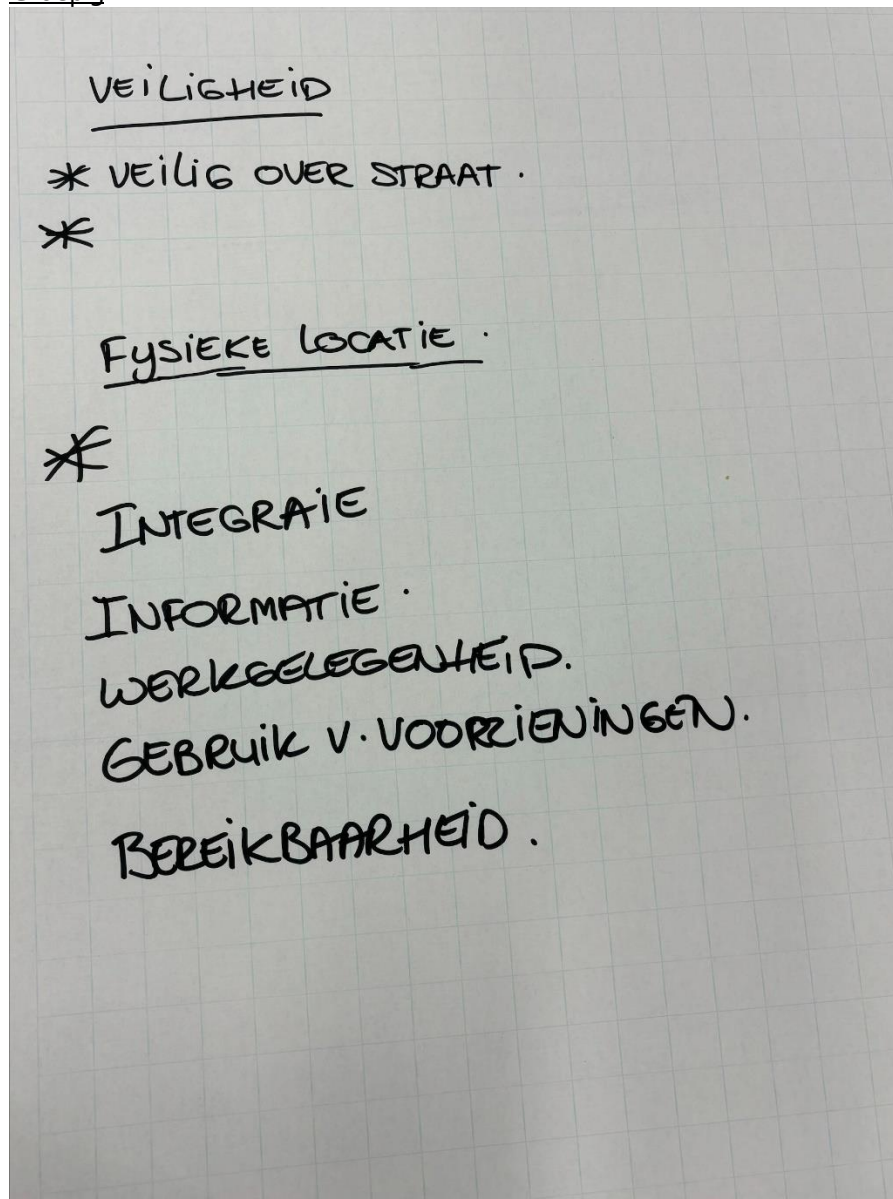 VEILIGHEID
* VEILIG OVER STRAAT.
*
FYSIEKE LOCATIE.
*
INTEGRAIE
INFORMATIE.
WERKGELEGENHEID.
GEBRUIK V. VOORZIENINGEN.
BEREIKBAARHEID.